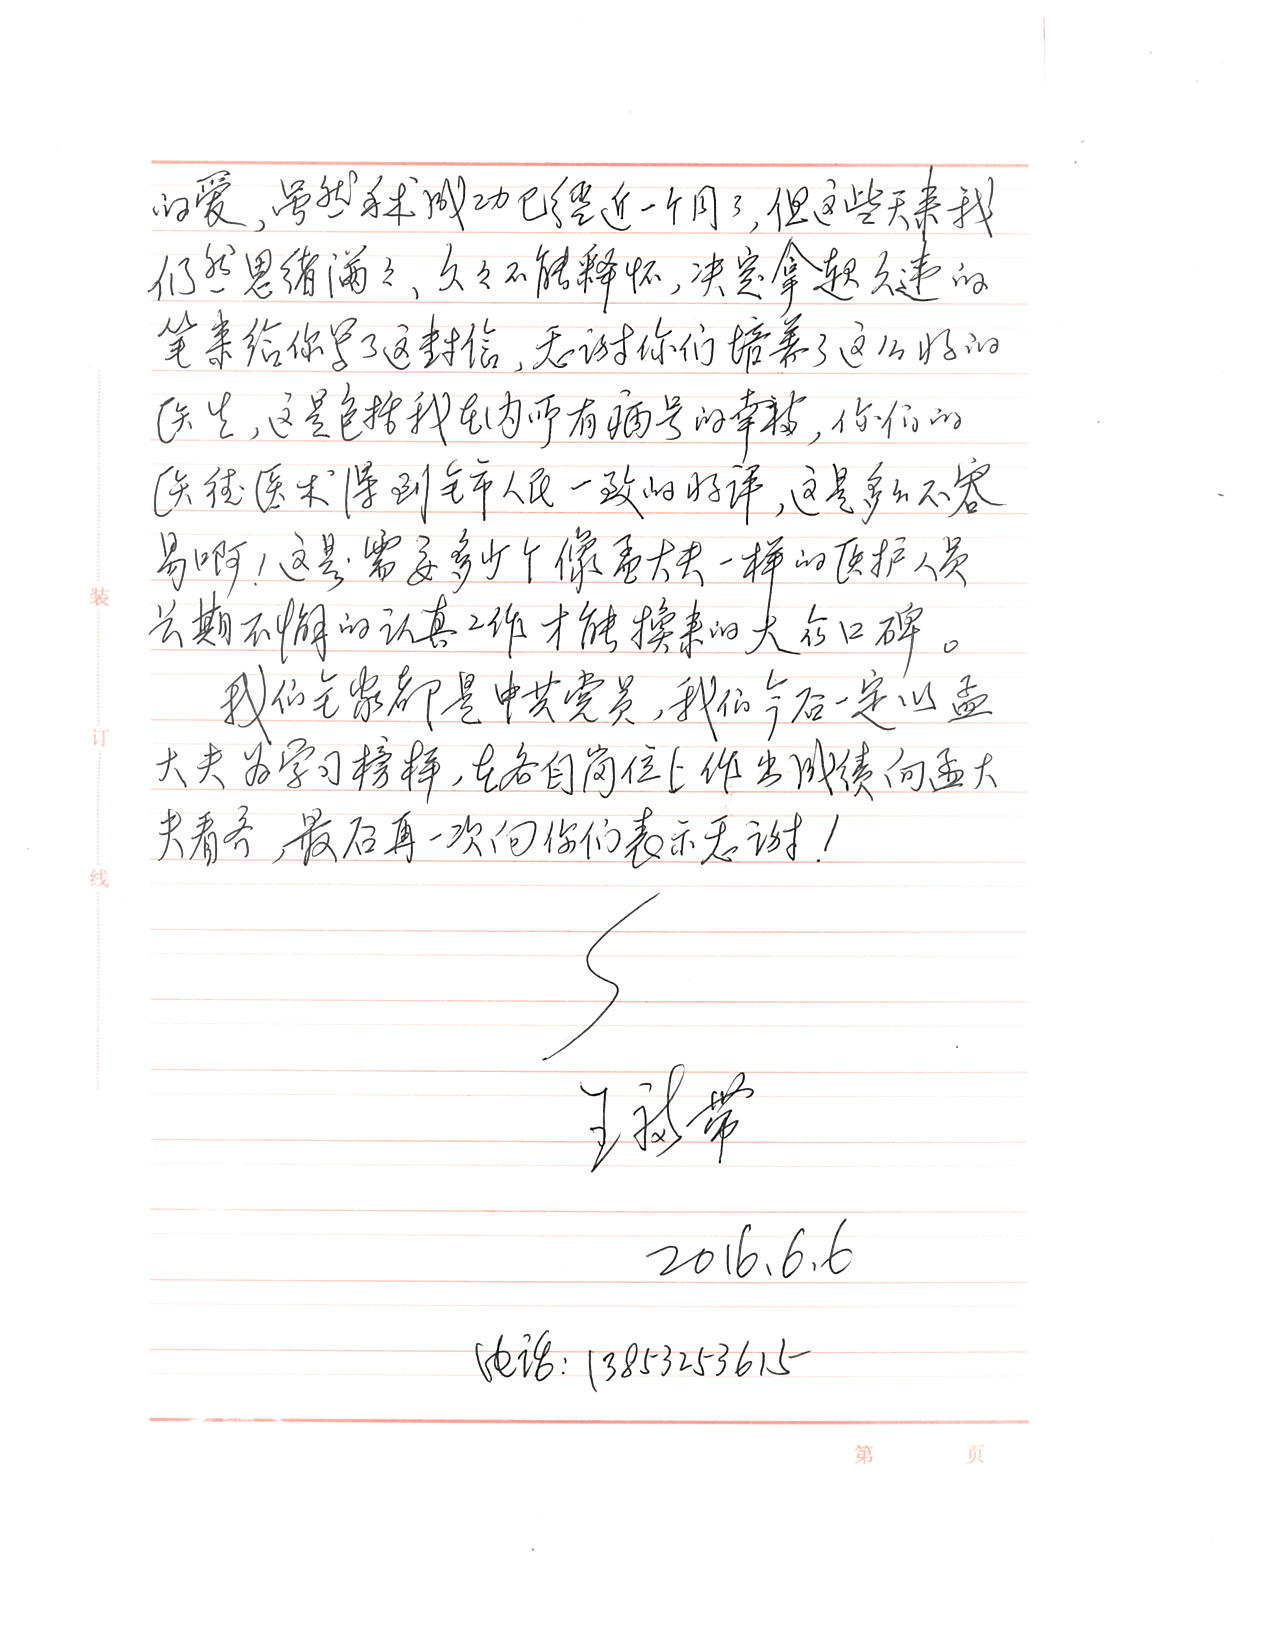 的爱，虽然手术成功已经近一个月了，但这些天来我
仍然思绪满々、久々不能释怀，决定拿起久违的
笔来给你写了这封信，感谢你们培养了这么好的
医生，这是包括我在内所有病号的幸福，你们的
医德医术得到全市人民一致的好评，这是多么不容
易啊！这是需要多少个像孟大夫一样的医护人员
长期不懈的认真工作才能换来的大众口碑。
我们全家都是中共党员，我们今后一定以孟
大夫为学习榜样，在各自岗位上作出成绩向孟大
夫看齐，最后再一次向你们表示感谢！
装
订
线
王 带
2016.6.6
电话：13853253615
第 页